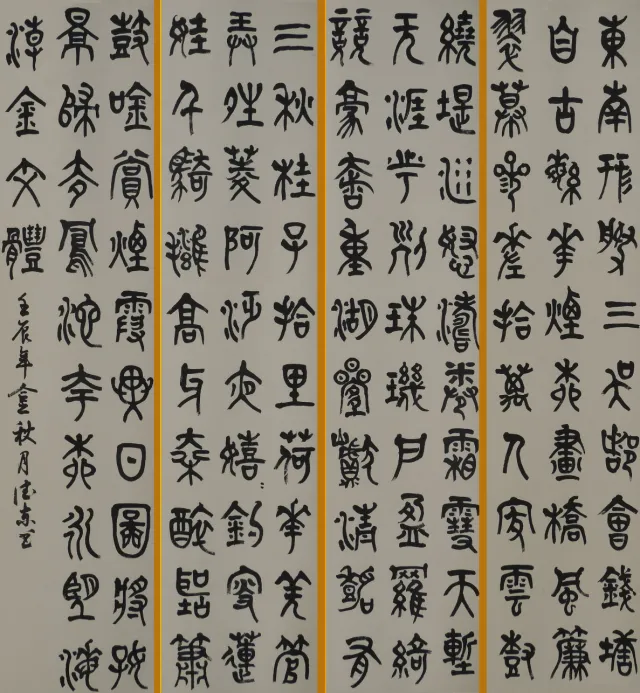 東南形勝三吳都會錢塘
自古繁華煙柳畫橋風簾
翠幕參差拾萬人家雲樹
繞堤沙怒濤卷霜雪天塹
无涯市列珠璣戶盈羅綺
競豪奢重湖疊巘清嘉有
三秋桂子拾里荷花羌管
弄晴菱歌泛夜嬉釣叟蓮
娃千騎擁高牙乘醉聽簫
鼓吟賞煙霞異日圖將好
景歸去鳳池夸柳永望海
潮金文體
壬辰年金秋月